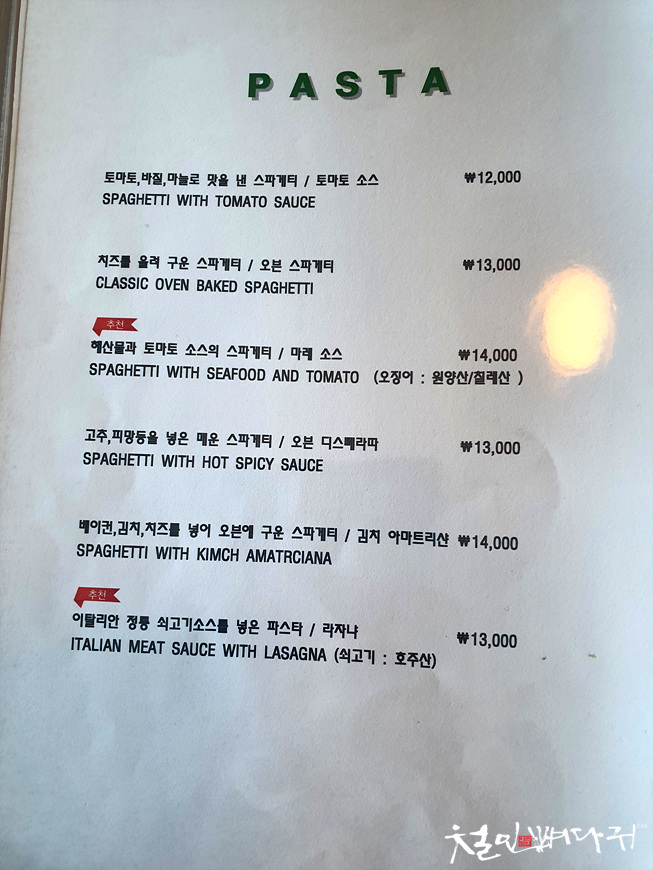 PASTA
토마토,바질,마늘로 맛을 낸 스파게티 / 토마토 소스 ₩12,000
SPAGHETTI WITH TOMATO SAUCE
치즈를 올려 구운 스파게티 / 오븐 스파게티 ₩13,000
CLASSIC OVEN BAKED SPAGHETTI
추천
해산물과 토마토 소스의 스파게티 / 마레 소스 ₩14,000
SPAGHETTI WITH SEAFOOD AND TOMATO (오징어 : 원양산/칠레산 )
고추,피망등을 넣은 매운 스파게티 / 오븐 디스뻬라따 ₩13,000
SPAGHETTI WITH HOT SPICY SAUCE
베이컨,김치,치즈를 넣어 오븐에 구운 스파게티 / 김치 아마트리샨 ₩14,000
SPAGHETTI WITH KIMCH AMATRCIANA
추천
이탈리안 정통 쇠고기소스를 넣은 파스타 / 라자냐 ₩13,000
ITALIAN MEAT SAUCE WITH LASAGNA (쇠고기 : 호주산)
철민뼈다귀